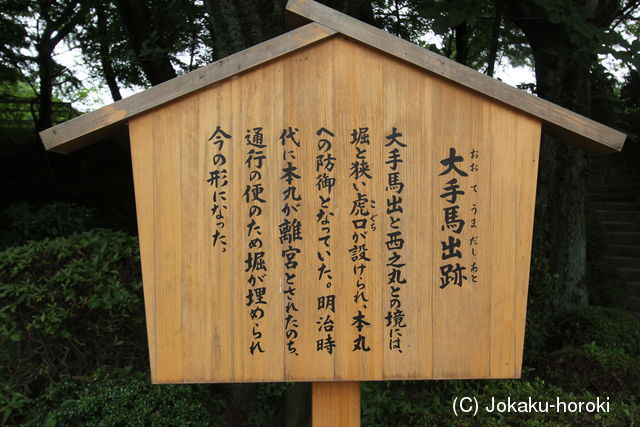 大手馬出跡
おおてうまだしあと
大手馬出と西之丸との境には、
堀と狭い虎口が設けられ、本丸
こぐち
への防御となっていた。明治時
代に本丸が離宮とされたのち、
通行の便のため堀が埋められ
今の形になった。
(C) Jokaku-horoki